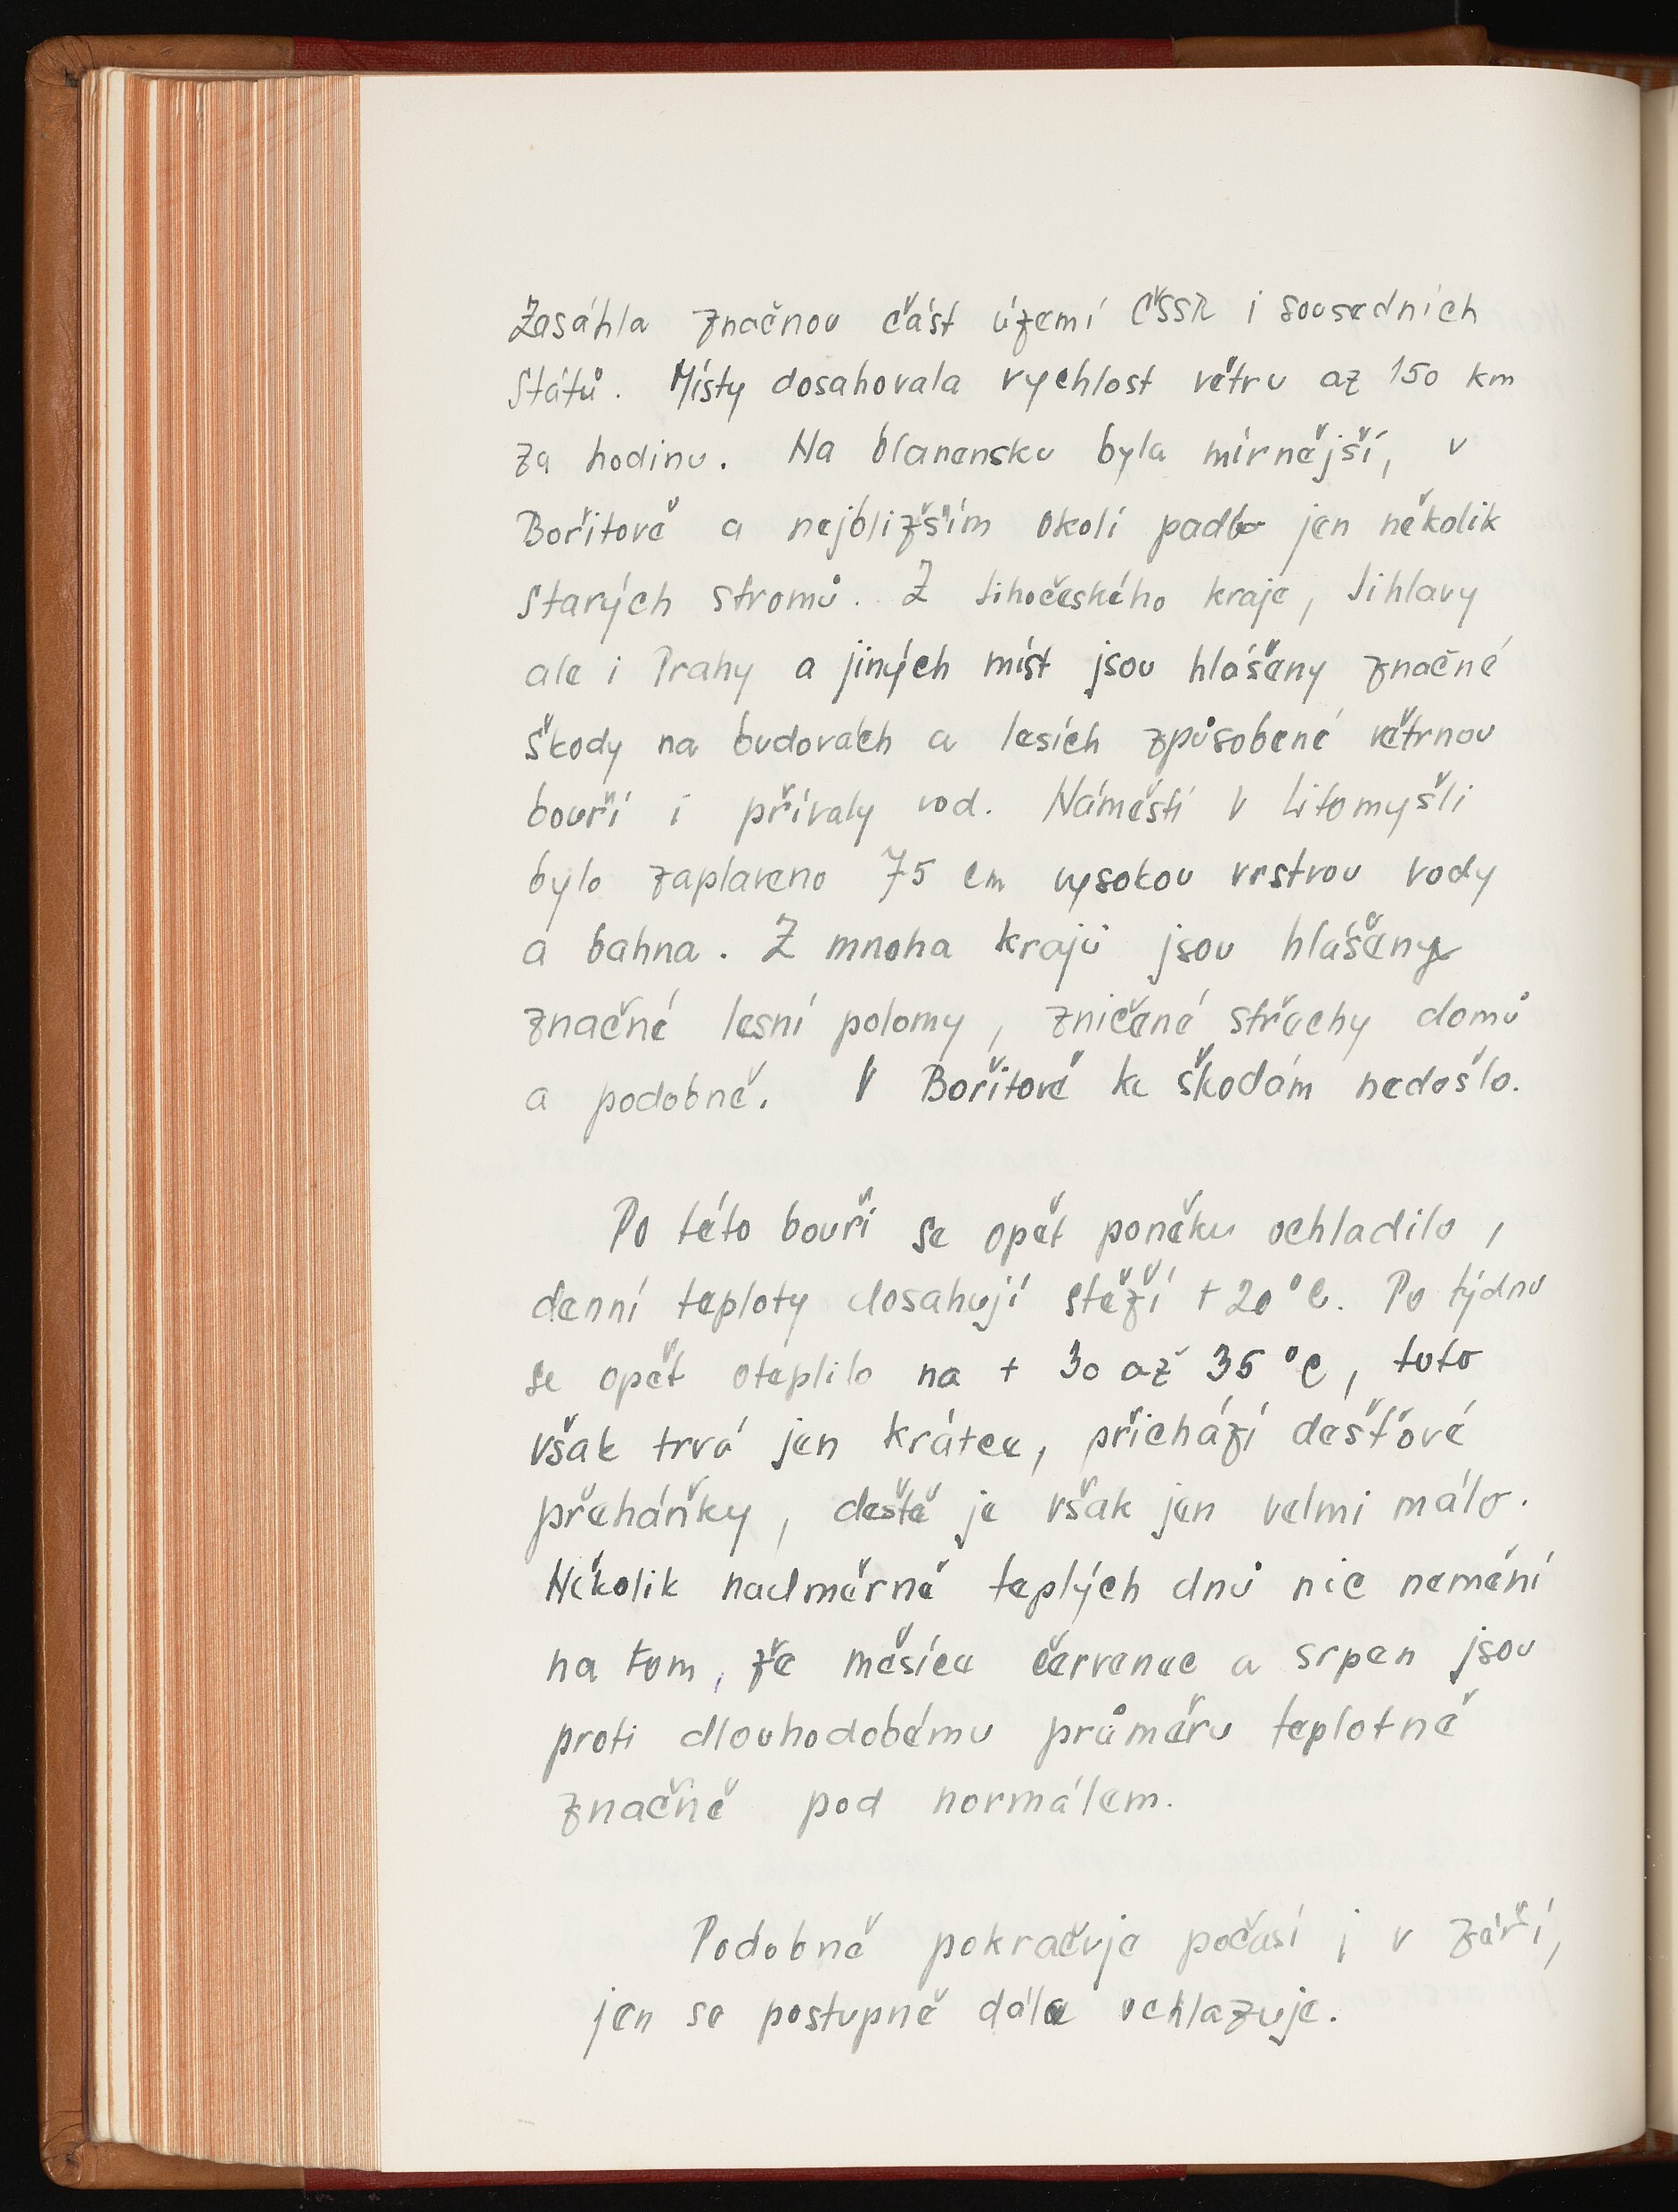 Zasáhla značnou část území ČSSR i sousedních
států. Místy dosahovala rychlost větru až 150 km
za hodinu. Na blanensku byla mírnější, v
Bořitově a nejbližším okolí padlo jen několik
starých stromů. Z Jihočeského kraje, Jihlavy
ale i Prahy a jiných míst jsou hlášeny značné
škody na budovách a lesích způsobené větrnou
bouří i přívaly vod. Náměstí v Litomyšli
bylo zaplaveno 75 cm vysokou vrstvou vody
a bahna. Z mnoha krajů jsou hlášeny
značné lesní polomy, zničené střechy domů
a podobně. V Bořitově ke škodám nedošlo.
Po této bouři se opět poněku ochladilo,
denní teploty dosahují stěží +20°C. Po týdnu
se opět oteplilo na + 30 až 35 °C, toto
však trvá jen krátce, přichází dešťové
přeháňky, deště je však jen velmi málo.
Několik nadměrně teplých dnů nic nemění
na tom, že měsíce červenec a srpen jsou
proti dlouhodobému průměru teplotně
značně pod normálem.
Podobně pokračuje počasí i v září,
jen se postupně dále ochlazuje.